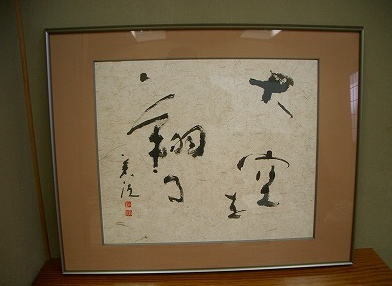 大空を
翔る